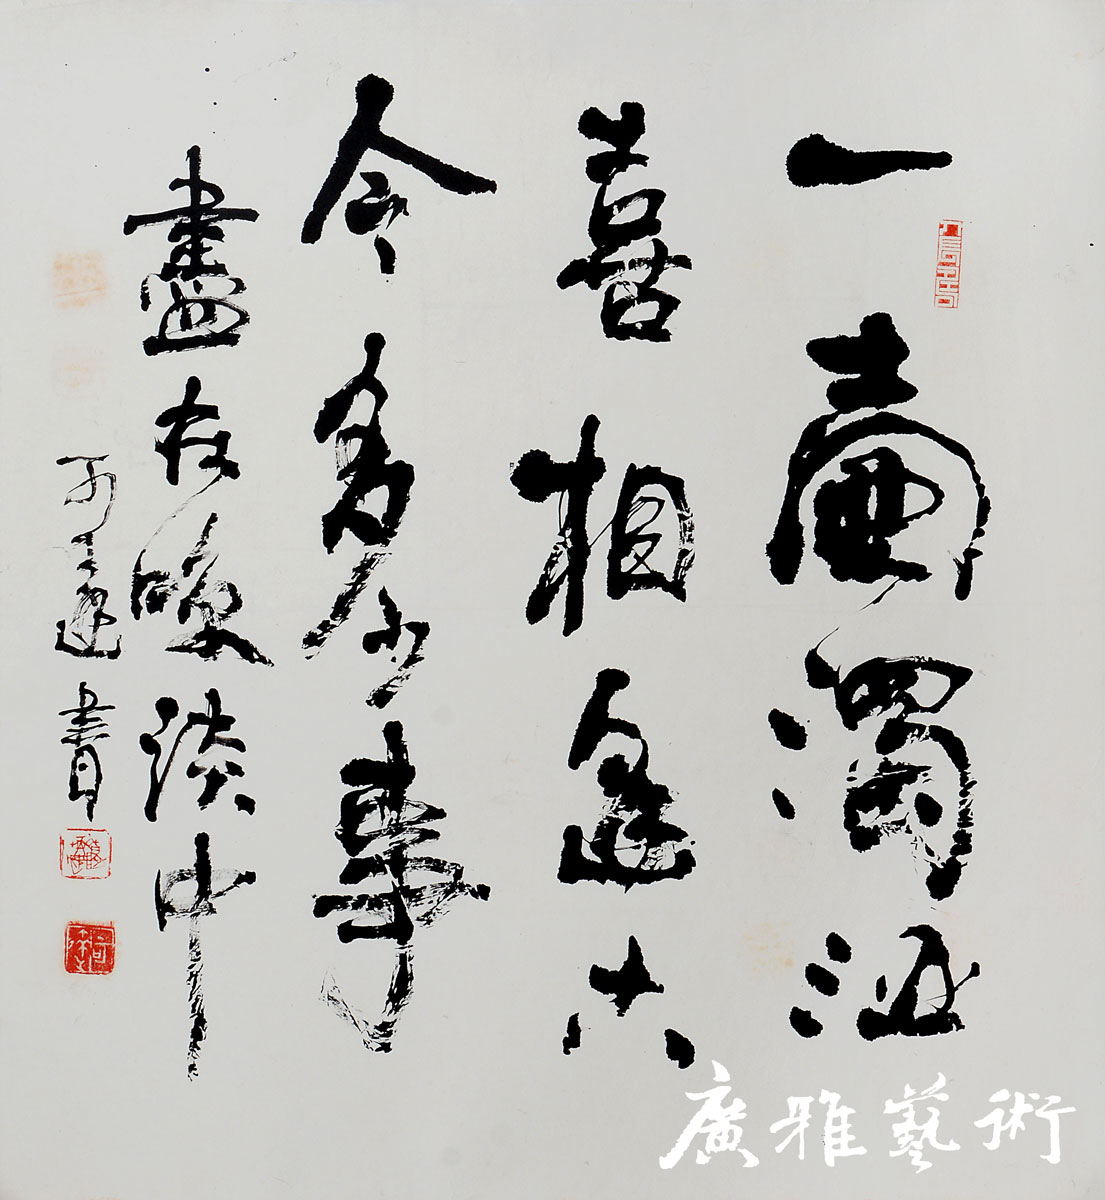 一壺濁酒
喜相逢古
今多少事
盡在咲談中
可達書
廣雅藝術